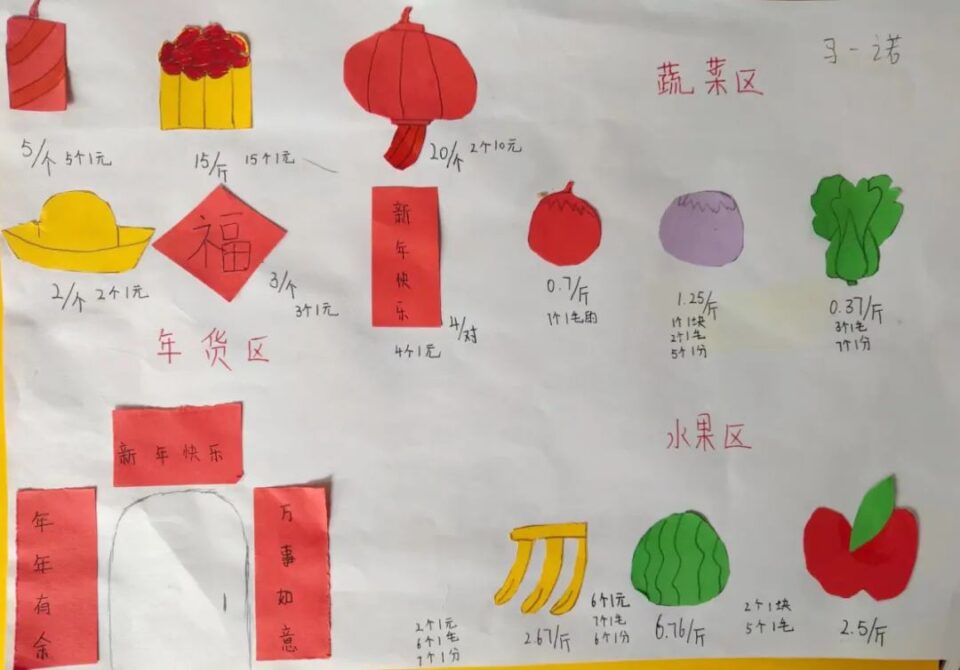 蔬菜区
马一诺
5/个 5个1元
15/斤 15个1元
20/个 2个10元
福
新年快乐
2/个 2个1元
3/个
3个1元
4/对
4个1元
0.7/斤
7个1毛的
1.25/斤
1个1块
2个1毛
5个1分
0.37/斤
3个1毛
7个1分
年货区
水果区
新年快乐
年年有余
万事如意
2个1元
6个1毛
7个1分
2.67/斤
6个1元
7个1毛
6个1分
6.76/斤
2个1块
5个1毛
2.5/斤